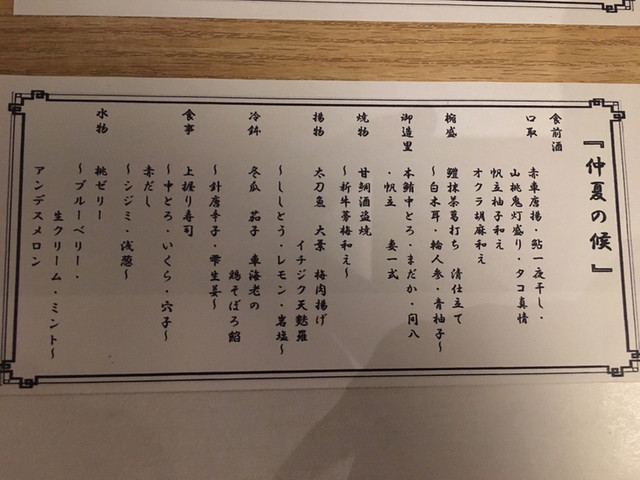 『仲夏の候』
食前酒
口取 赤車唐揚・鮎一夜干し・
山桃鬼灯盛り・タコ真情
帆立柚子和え
オクラ胡麻和え
椀盛 鱧抹茶葛打ち 清仕立て
～白木耳・輪人参・青柚子～
御造里 本鮪中とろ・まだか・間八
・帆立 妻一式
焼物 甘鯛酒盗焼
～新牛蒡梅和え～
揚物 太刀魚 大葉 梅肉揚げ
イチジク天麩羅
～ししとう・レモン・岩塩～
冷鉢 冬瓜 茄子 車海老の
鶏そぼろ餡
～針唐辛子・雫生姜～
食事 上握り寿司
～中とろ・いくら・穴子～
赤だし
～シジミ・浅葱～
水物 桃ゼリー
～ブルーベリー・
生クリーム・ミント～
アンデスメロン